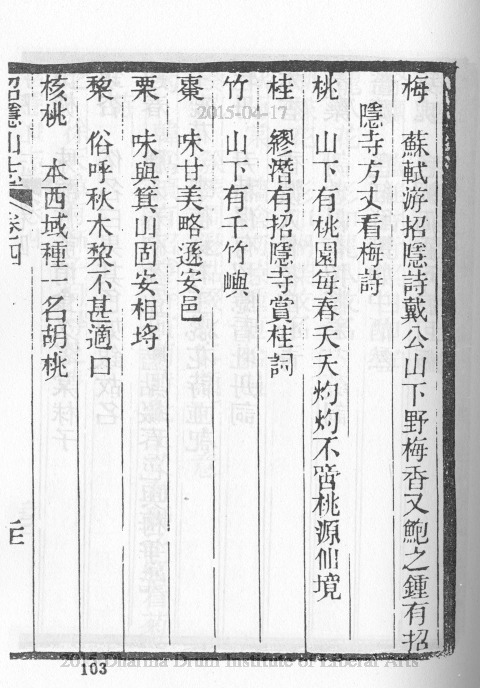 梅　蘇軾游招隱詩戴公山下野梅香又鮑之鍾有招
隱寺方丈看梅詩
桃　山下有桃園每春夭夭灼灼不啻桃源仙境
桂　繆潛有招隱寺賞桂詞
竹　山下有千竹嶼
棗　味甘美略遜安邑
栗　味與箕山固安相埒
棃　俗呼秋木棃不甚適口
核桃　本西域種一名胡桃
招隱山志　卷四
2015-04-17
2015 Dharma Drum Institute of Liberal Arts
103